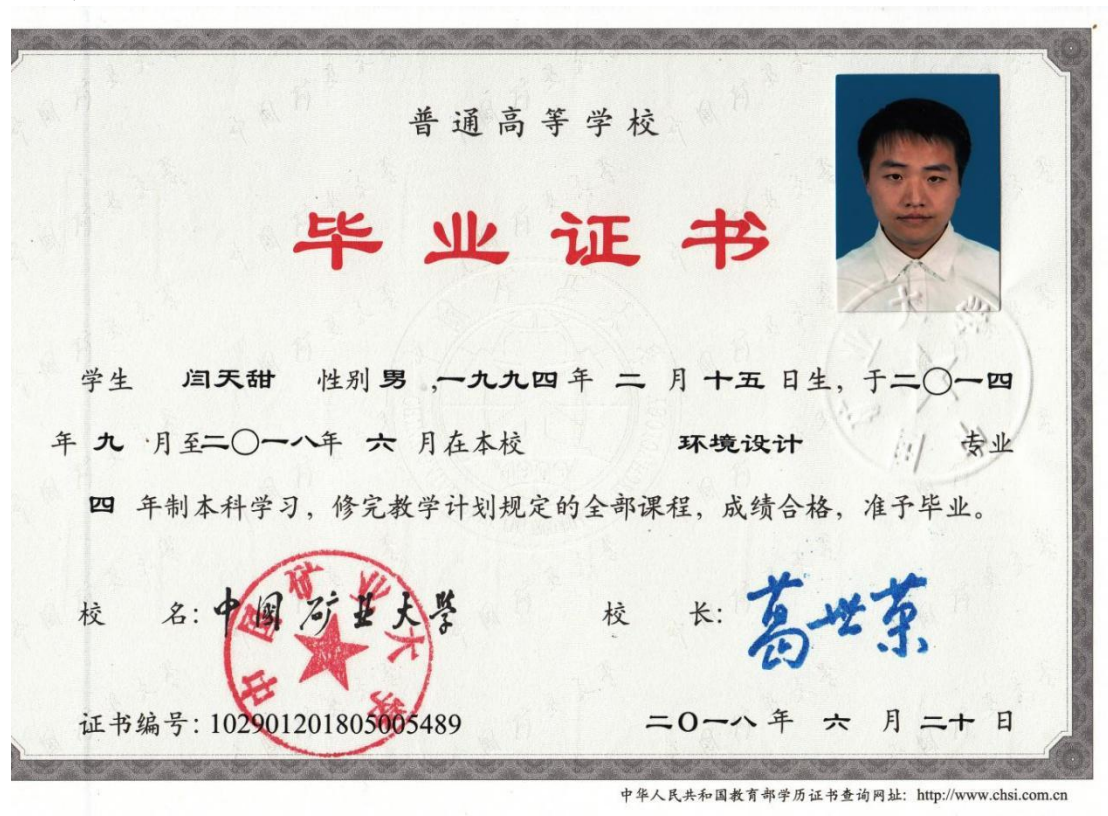 普通高等学校
毕业证书
学生 闫天甜 性别 男 ,一九九四 年 二 月 十五 日生, 于二〇一四
年 九 月至二〇一八年 六 月在本校 环境设计 专业
四 年制本科学习, 修完教学计划规定的全部课程, 成绩合格, 准予毕业。
校 名: 中国矿业大学
中国矿业大学
校 长: 葛世荣
证书编号: 102901201805005489
二〇一八 年 六 月 二十 日
中华人民共和国教育部学历证书查询网址: http://www.chsi.com.cn